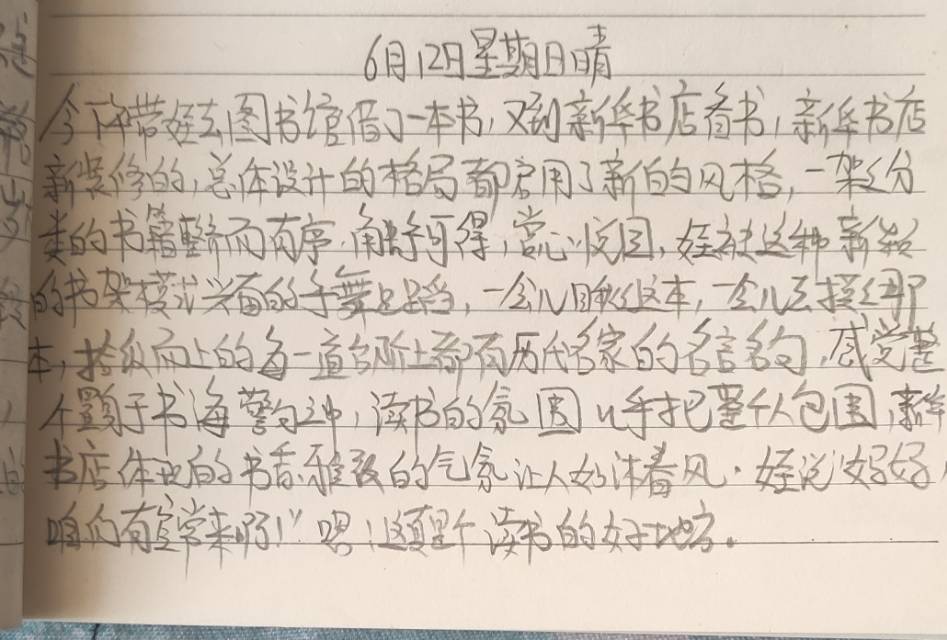 6月12日星期日晴
今下午带娃去图书馆借了一本书,又到新华书店看书,新华书店
新装修的,总体设计的格局都启用了新的风格,一架之分
类的书籍整齐而有序,触手可得,赏心悦目,娃被这种新
的书架模式兴奋的手舞足蹈,一会儿瞅瞅这本,一会儿去摸摸那
本,拾级而上的每一道台阶上都有历代名家的名言名句,感觉整
个置身于书海警句之中,读书的氛围几乎把整个人包围,新华
书店体现的书香雅致的气氛让人如沐春风.娃说"妈妈
咱们有空常来啊!"嗯!这真是个读书的好地方。